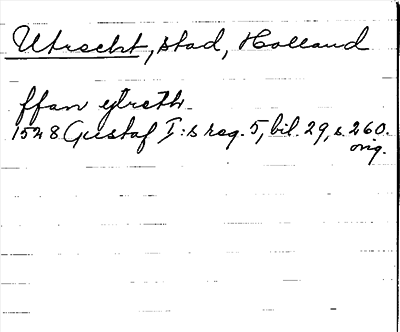 Utrecht, stad, Holland
ffan ytrcth
1528 Gustaf I:s reg. 5, bil. 29, s. 260.
orig.